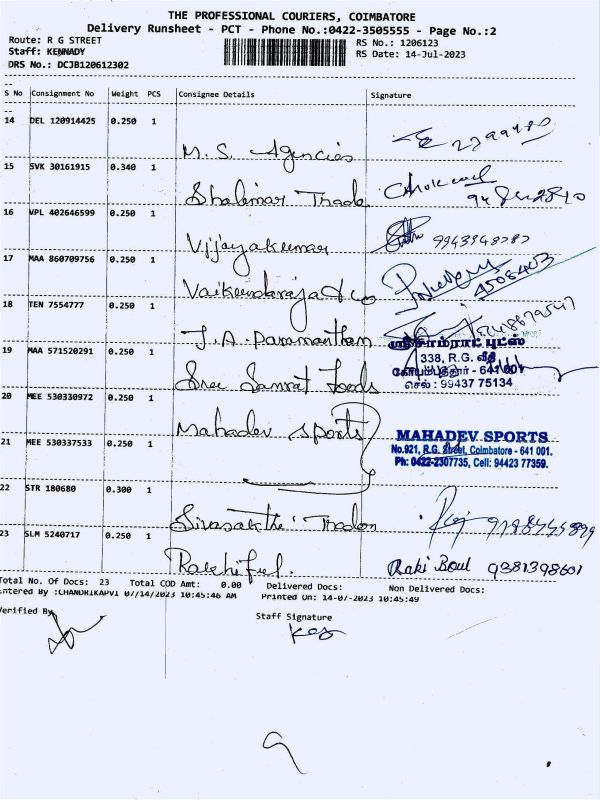 THE PROFESSIONAL COURIERS, COIMBATORE
Delivery Runsheet - PCT - Phone No.:0422-3505555 - Page No.:2
Route: R G STREET
RS No.: 1206123
Staff: KENNADY
RS Date: 14-Jul-2023
DRS No.: DCJB120612302
S No Consignment No Weight PCS Consignee Details Signature
14 DEL 120914425 0.250 1
M.S. Agencies
15 SVK 30161915 0.340 1
Shalimar Trade
16 VPL 402646599 0.250 1
Vijayakumar
17 MAA 860709756 0.250 1
Vaikundaraja & co
4508403
18 TEN 7554777 0.250 1
J.A. Paramanthan
ஸ்ரீ சாம்ராட் புட்ஸ்
338, R.G. வீதி
19 MAA 571520291 0.250 1
Sree Samrat Foods
கோயமுத்தூர் - 641 001
செல் : 99437 75134
20 MEE 530330972 0.250 1
Mahadev Sports
21 MEE 530337533 0.250 1
MAHADEV SPORTS
No.921, R.G. Street, Coimbatore - 641 001.
Ph: 0422-2307735, Cell: 94423 77359.
22 STR 180680 0.300 1
Sivasakthi Traders
23 SLM 5240717 0.250 1
Raki Boul 9381398601
Total No. Of Docs: 23 Total COD Amt: 0.00 Delivered Docs: Non Delivered Docs:
Entered By :CHANDRIKAPVI 07/14/2023 10:45:46 AM Printed On: 14-07-2023 10:45:49
Verified By
Staff Signature